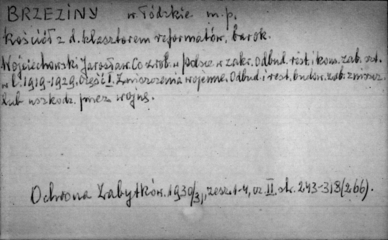 BRZEZINY w. Łódzkie m.p.
Kościół z d. klasztorem reformatów, barok.
Wojciechowski Jarosław. Co zrob. w Polsce w zakr. Odbud. rest. i kons. zab. szt.
w l. 1919-1929. Część I. Zniszczenia wojenne. Odbud. i rest. budow. zab. zniszcz.
lub uszkodz. przez wojnę.
Ochrona Zabytków. 1930/31, zesz. 1-4, cz. II str. 243-318 (266).